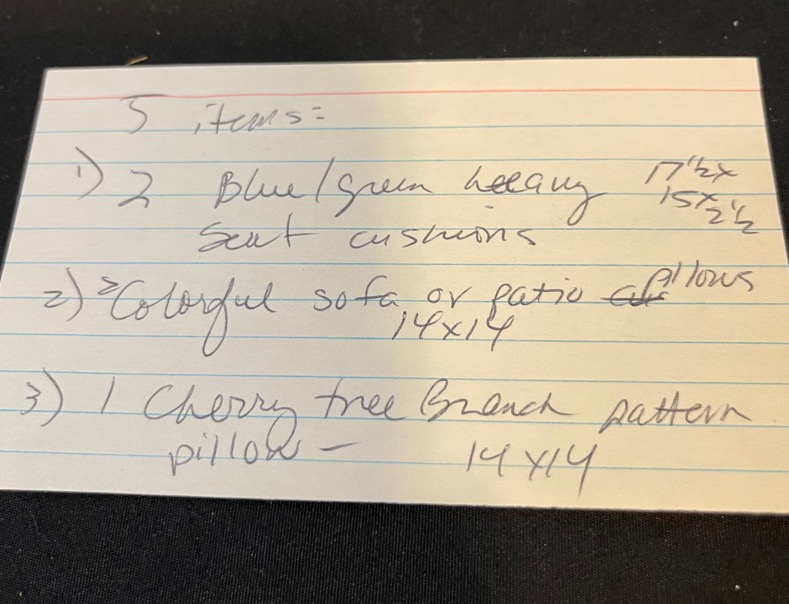 5 items:
1) 2 Blue/green heeavy 17 1/2 x
15 x 2 1/2
Seat cushions
2) 2 Colorful sofa or patio pillows
14 x 14
3) 1 Cherry tree Branch pattern
pillow — 14 x 14